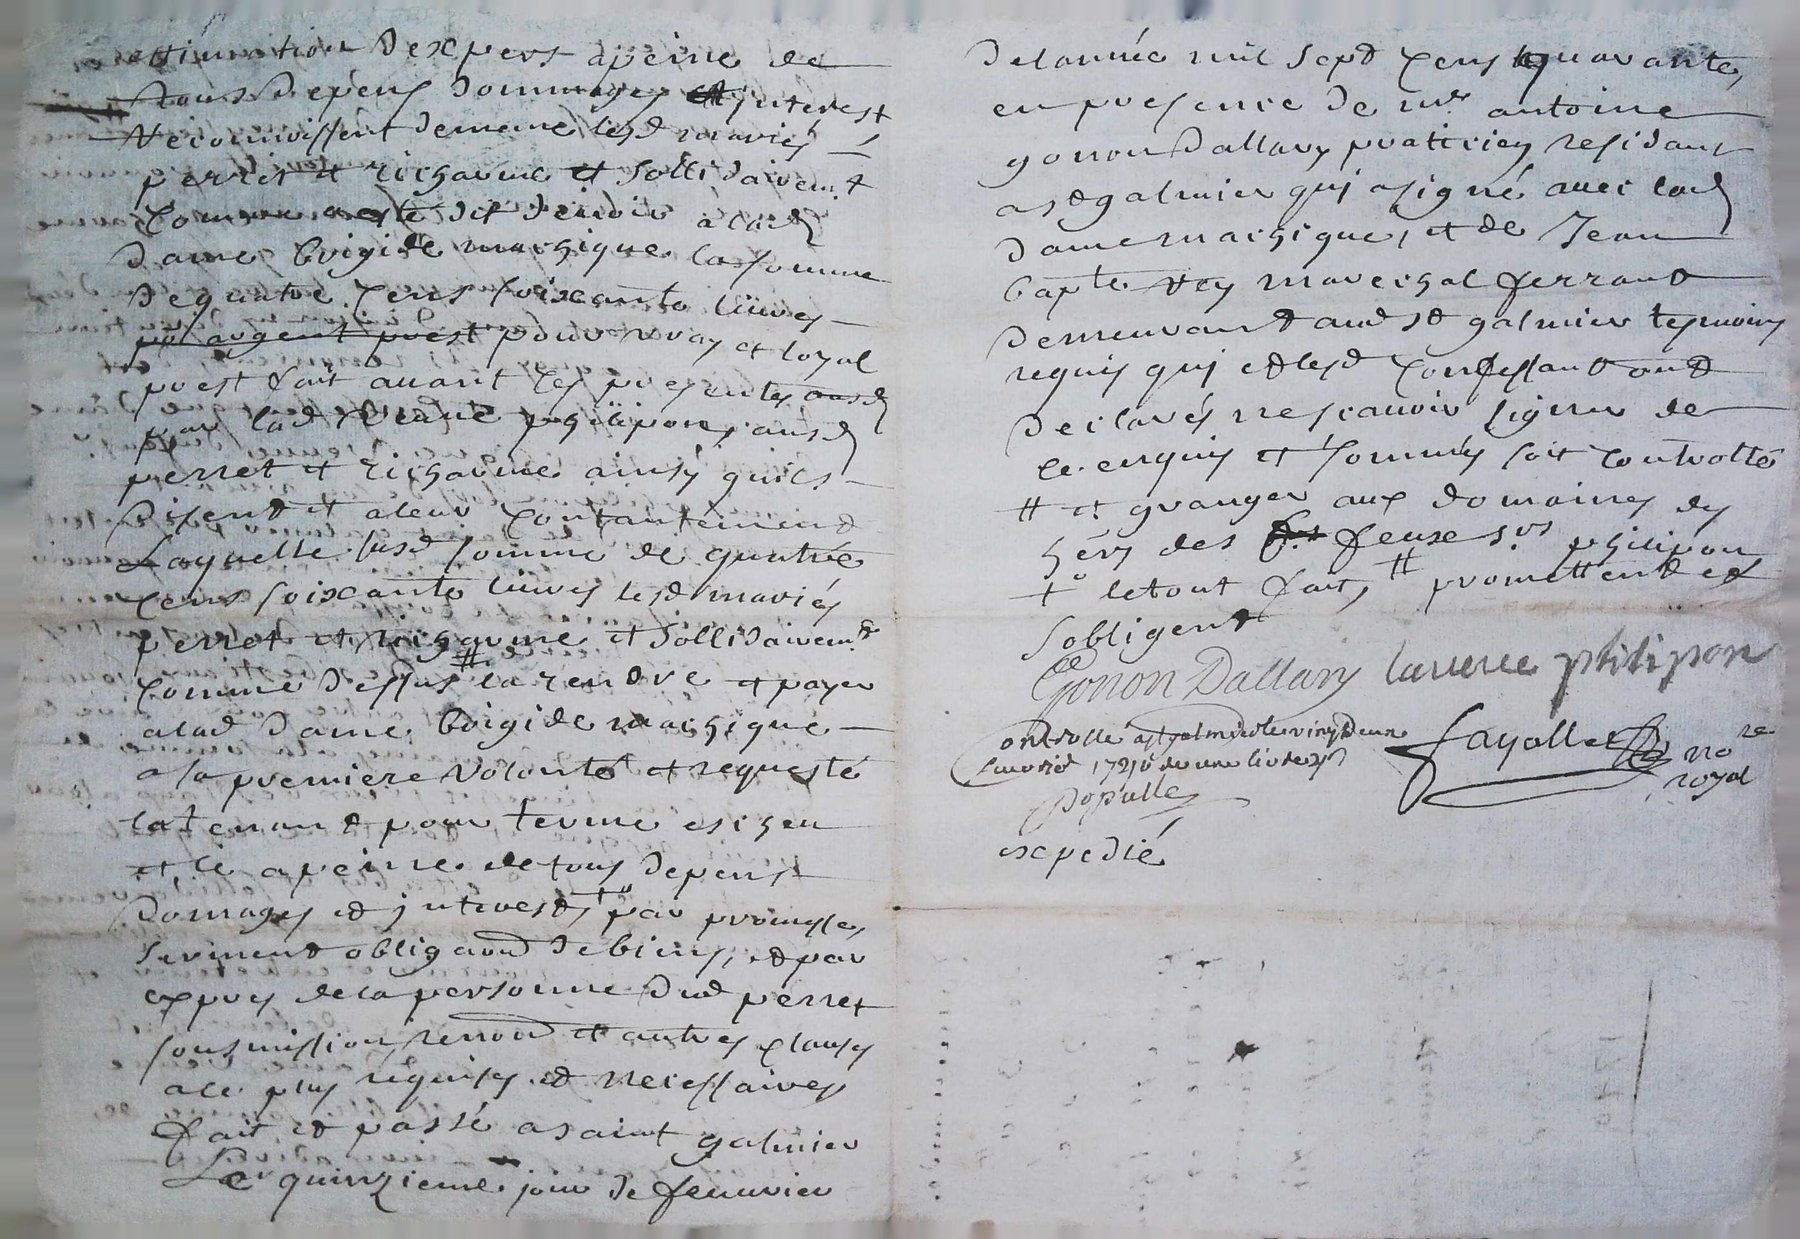 estimation dexpers apeine de
tous depens dommages et interest
Reconnoissent dememe lesd mariés
perret et richarme et sollidairemt
comme a esté dit devoir a lad
dame brigide machique la somme
dequatre cens soixante livres
pr argent prest pour vray et loyal
prest fait avant ces presentes ausd
par lad veuve philipon ausd
perret et richarme ainsy quils
disent et aleur contantement
Laquelle susd somme de quatre
cens soixante livres lesd mariés
perret et richarme et sollidairemt
comme dessus # la rendre et payer
alad dame brigide machique
ala premiere volonté et requeste
latenant pour terme escheu
et ce apeine detous depens
domages et interests + par promesse,
serment obligaon de biens, et par
expres dela personne dud perret
sousmission, renon et autres clauses
ace plus requises et necessaires
fait et passé a saint galmier
Le quinzieme jour de fevurier
delannée mil sept cens quarante,
en presence de mr antoine
gonon dallary praticien residant
a st galmier qui a signé avec lad
dame machique, et de Jean
bapte rey marechal ferrant
demeurant aud st galmier tesmoins
requis qui et lesd confessant ont
declarés ne scavoir signer de
ce enquis et sommés soit controllé
# et granger aux domaines des
hers des feux srs philipon
+ letout fait, # promettent et
sobligent
Gonon Dallary laveuve philipon
Controllé a st galmier le vingt deux
fevrier 1740
Fayolle no re
royal
Popülle
expedié